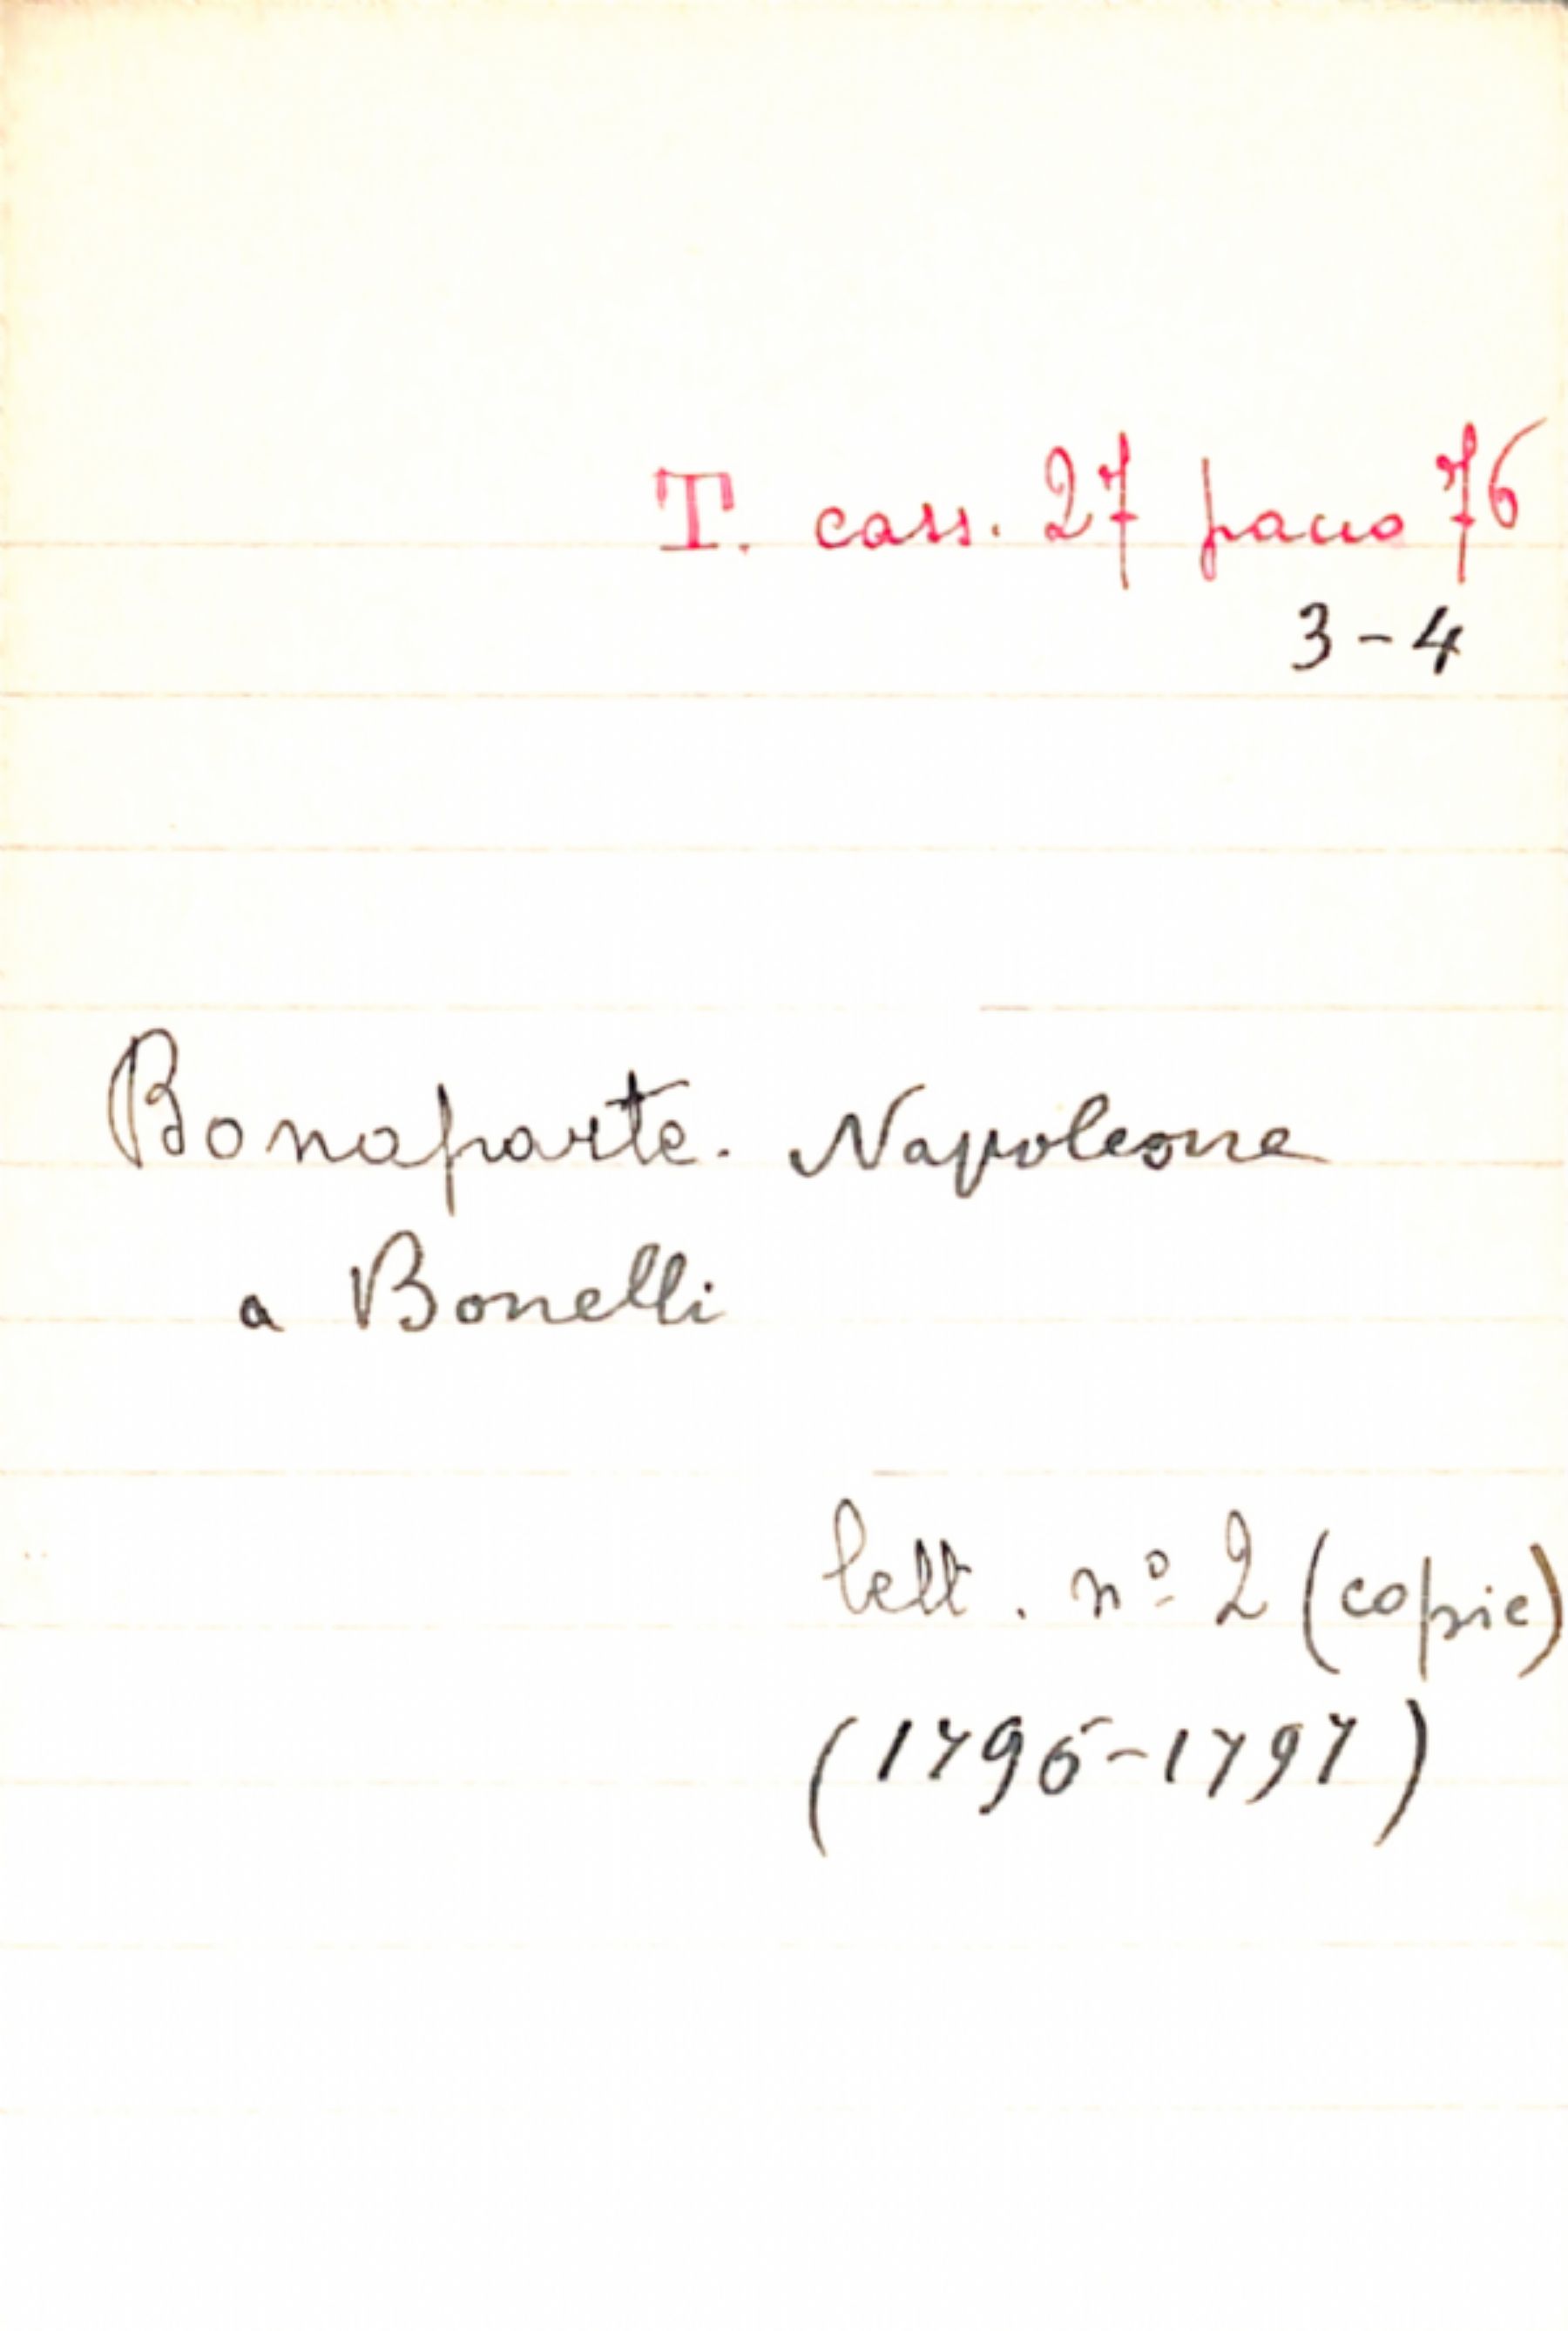 T. cass. 27 pacco 76
3-4
Bonaparte. Napoleone
a Bonelli
lett. nº 2 (copie)
(1796-1797)